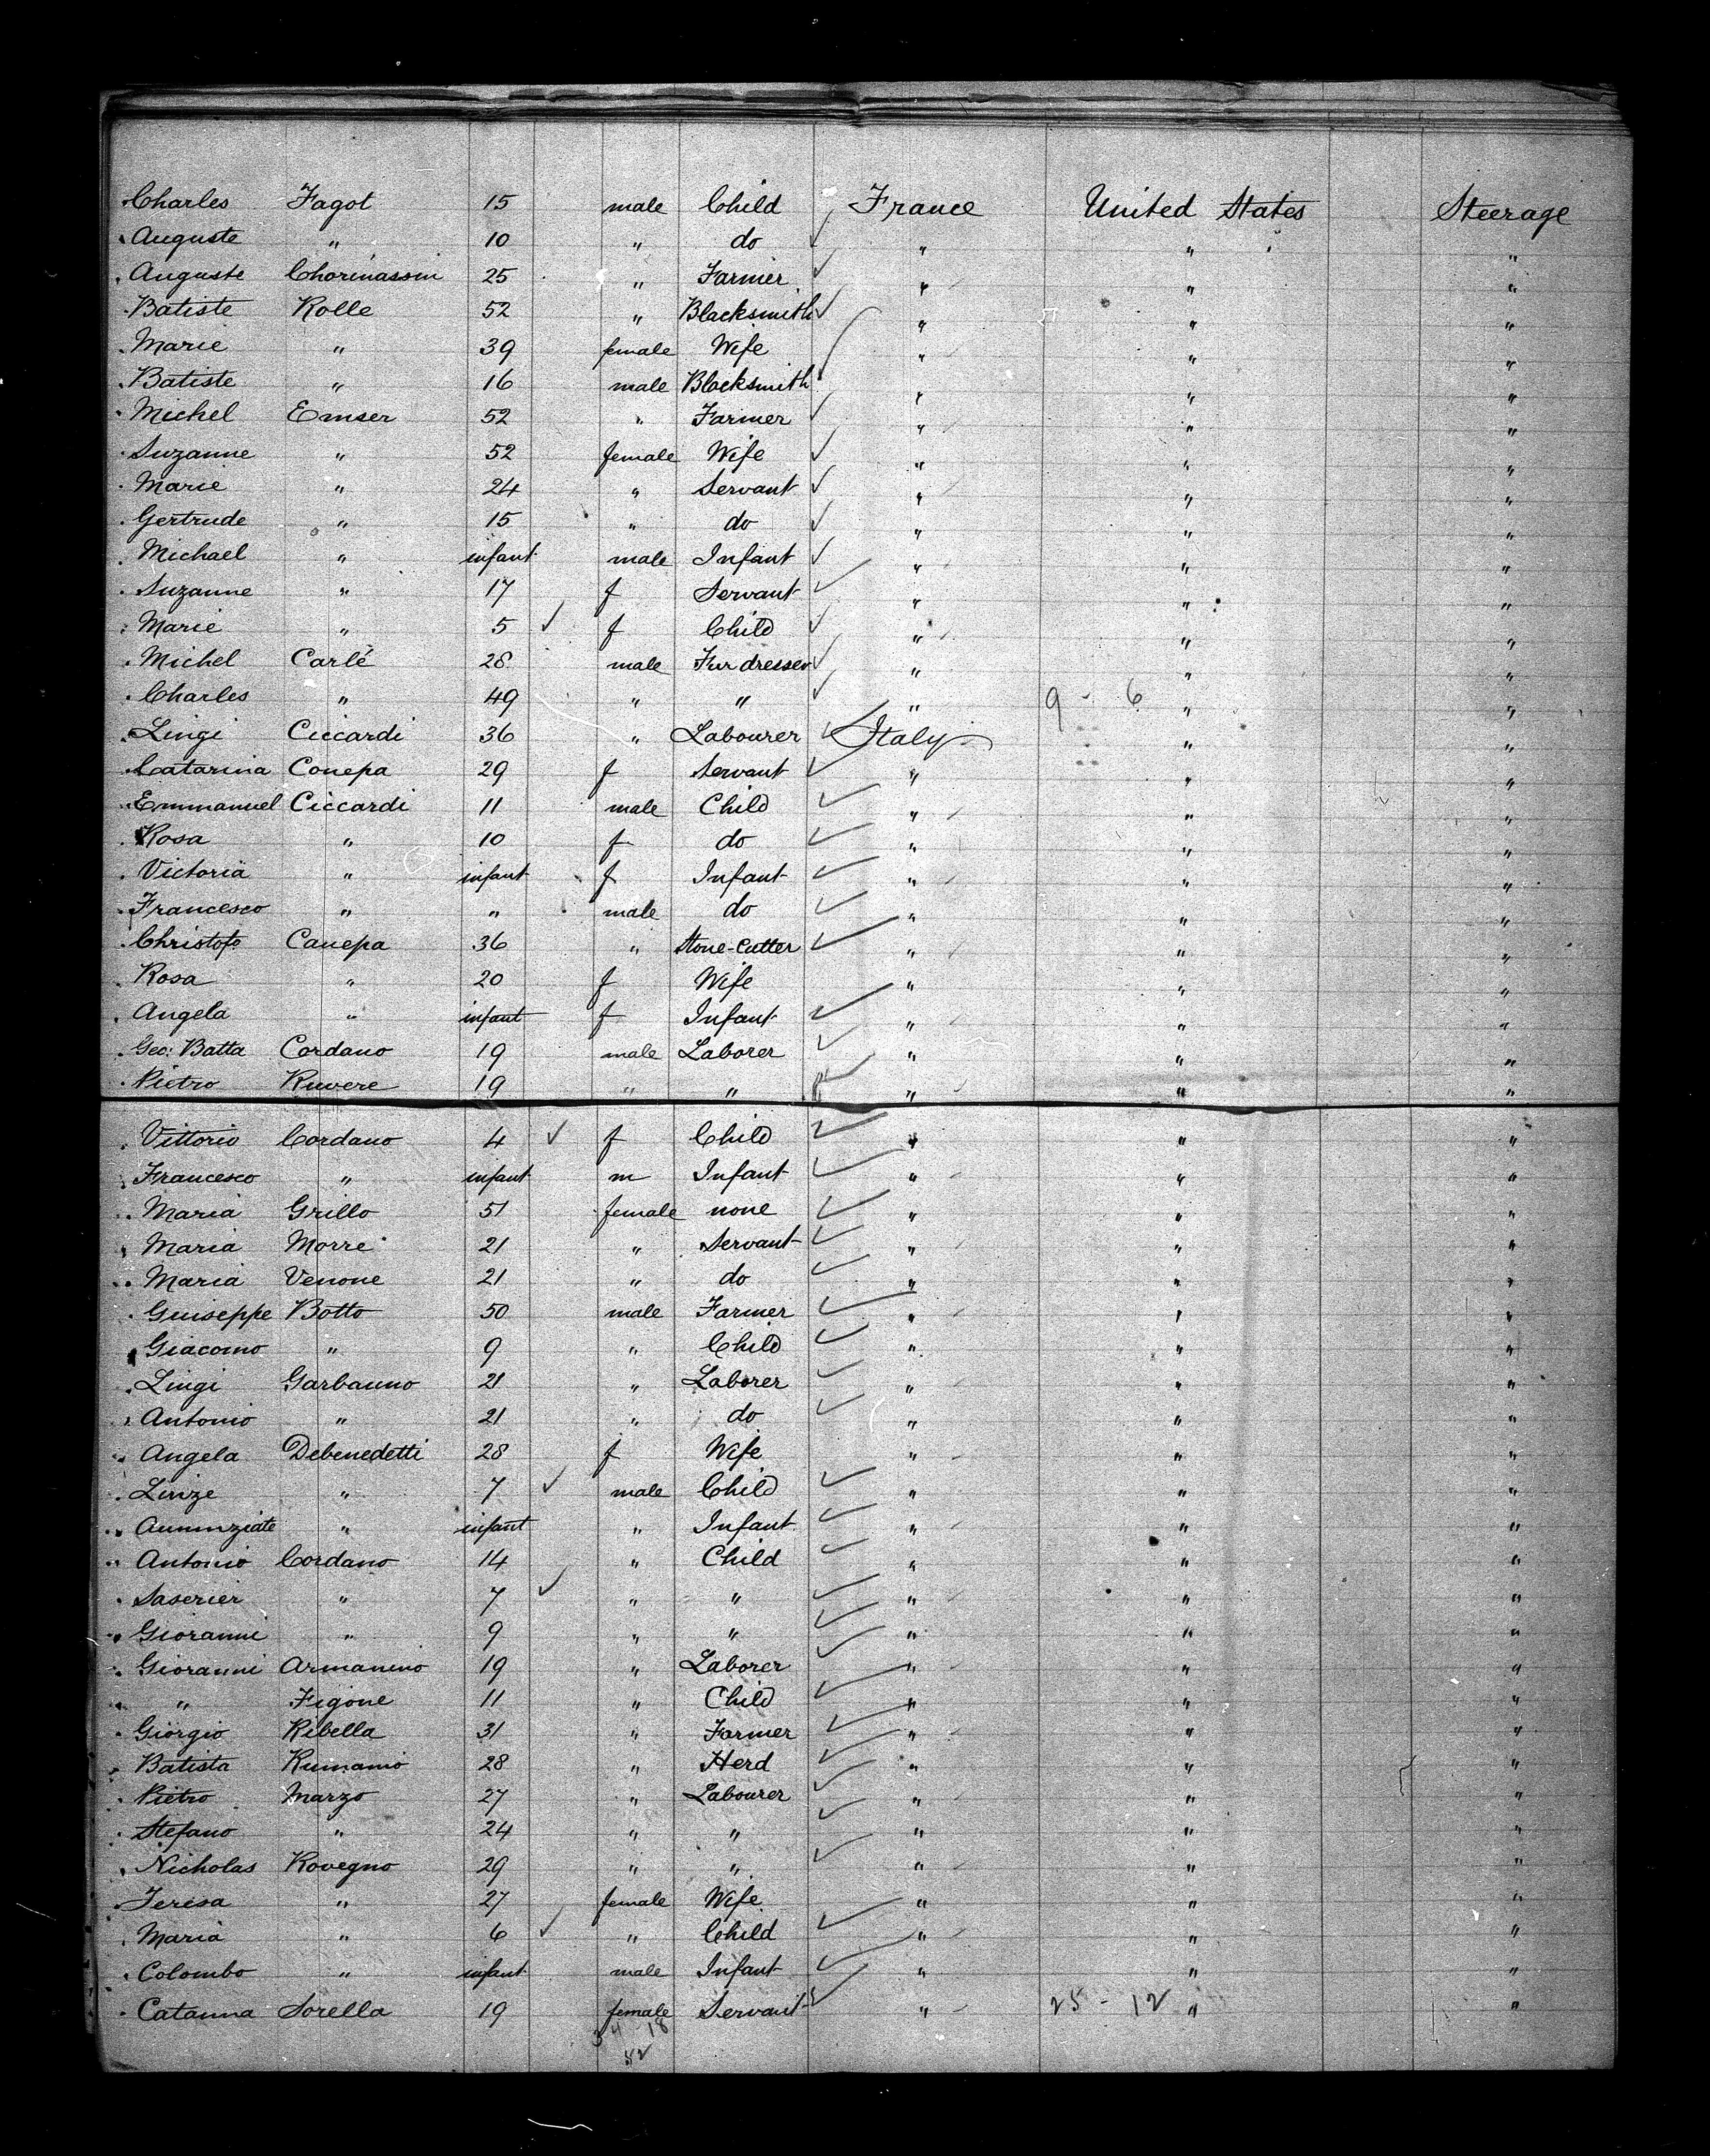 Charles Fagot 15 male Child France United States Steerage
Auguste " 10 " do " " "
Auguste Chorinassin 25 " Farmer " " "
Batiste Rolle 52 " Blacksmith " " "
Marie " 39 female Wife " " "
Batiste " 16 male Blacksmith " " "
Michel Emser 52 " Farmer " " "
Suzanne " 52 female Wife " " "
Marie " 24 " Servant " " "
Gertrude " 15 " do " " "
Michael " infant male Infant " " "
Suzanne " 17 f Servant " " "
Marie " 5 ✓ f Child " " "
Michel Carlé 28 male Fur dresser " " "
Charles " 49 " " " 9 - 6 " "
Lingi Ciccardi 36 " Labourer Italy " "
Catarina Conepa 29 f Servant " " "
Emmanuel Ciccardi 11 male Child " " "
Rosa " 10 f do " " "
Victoria " infant f Infant " " "
Francesco " " male do " " "
Christofo Canepa 36 " Stone-Cutter " " "
Rosa " 20 f Wife " " "
Angela " infant f Infant " " "
Geo: Batta Cordano 19 male Laborer " " "
Pietro Ruvere 19 " " " " "
Vittorio Cordano 4 ✓ f Child " " "
Francesco " infant m Infant " " "
Maria Grillo 51 female none " " "
Maria Morre 21 " Servant " " "
Maria Venone 21 " do " " "
Guiseppe Botto 50 male Farmer " " "
Giacomo " 9 " Child " " "
Lingi Garbauno 21 " Laborer " " "
Antonio " 21 " do " " "
Angela Debenedetti 28 f Wife " " "
Linze " 7 ✓ male Child " " "
Aununziate " infant " Infant " " "
Antonio Cordano 14 " Child " " "
Saserier " 7 ✓ " " " " "
Gioranni " 9 " " " " "
Gioranni Armanino 19 " Laborer " " "
" Figone 11 " Child " " "
Giorgio Ribella 31 " Farmer " " "
Batista Rumanio 28 " Herd " " "
Pietro Marzo 27 " Labourer " " "
Stefano " 24 " " " " "
Nicholas Rovegno 29 " " " " "
Teresa " 27 female Wife " " "
Maria " 6 ✓ " Child " " "
Colombo " infant male Infant " " "
Catanna Sorella 19 female Servant " 25 - 12 " "
34 - 18
52